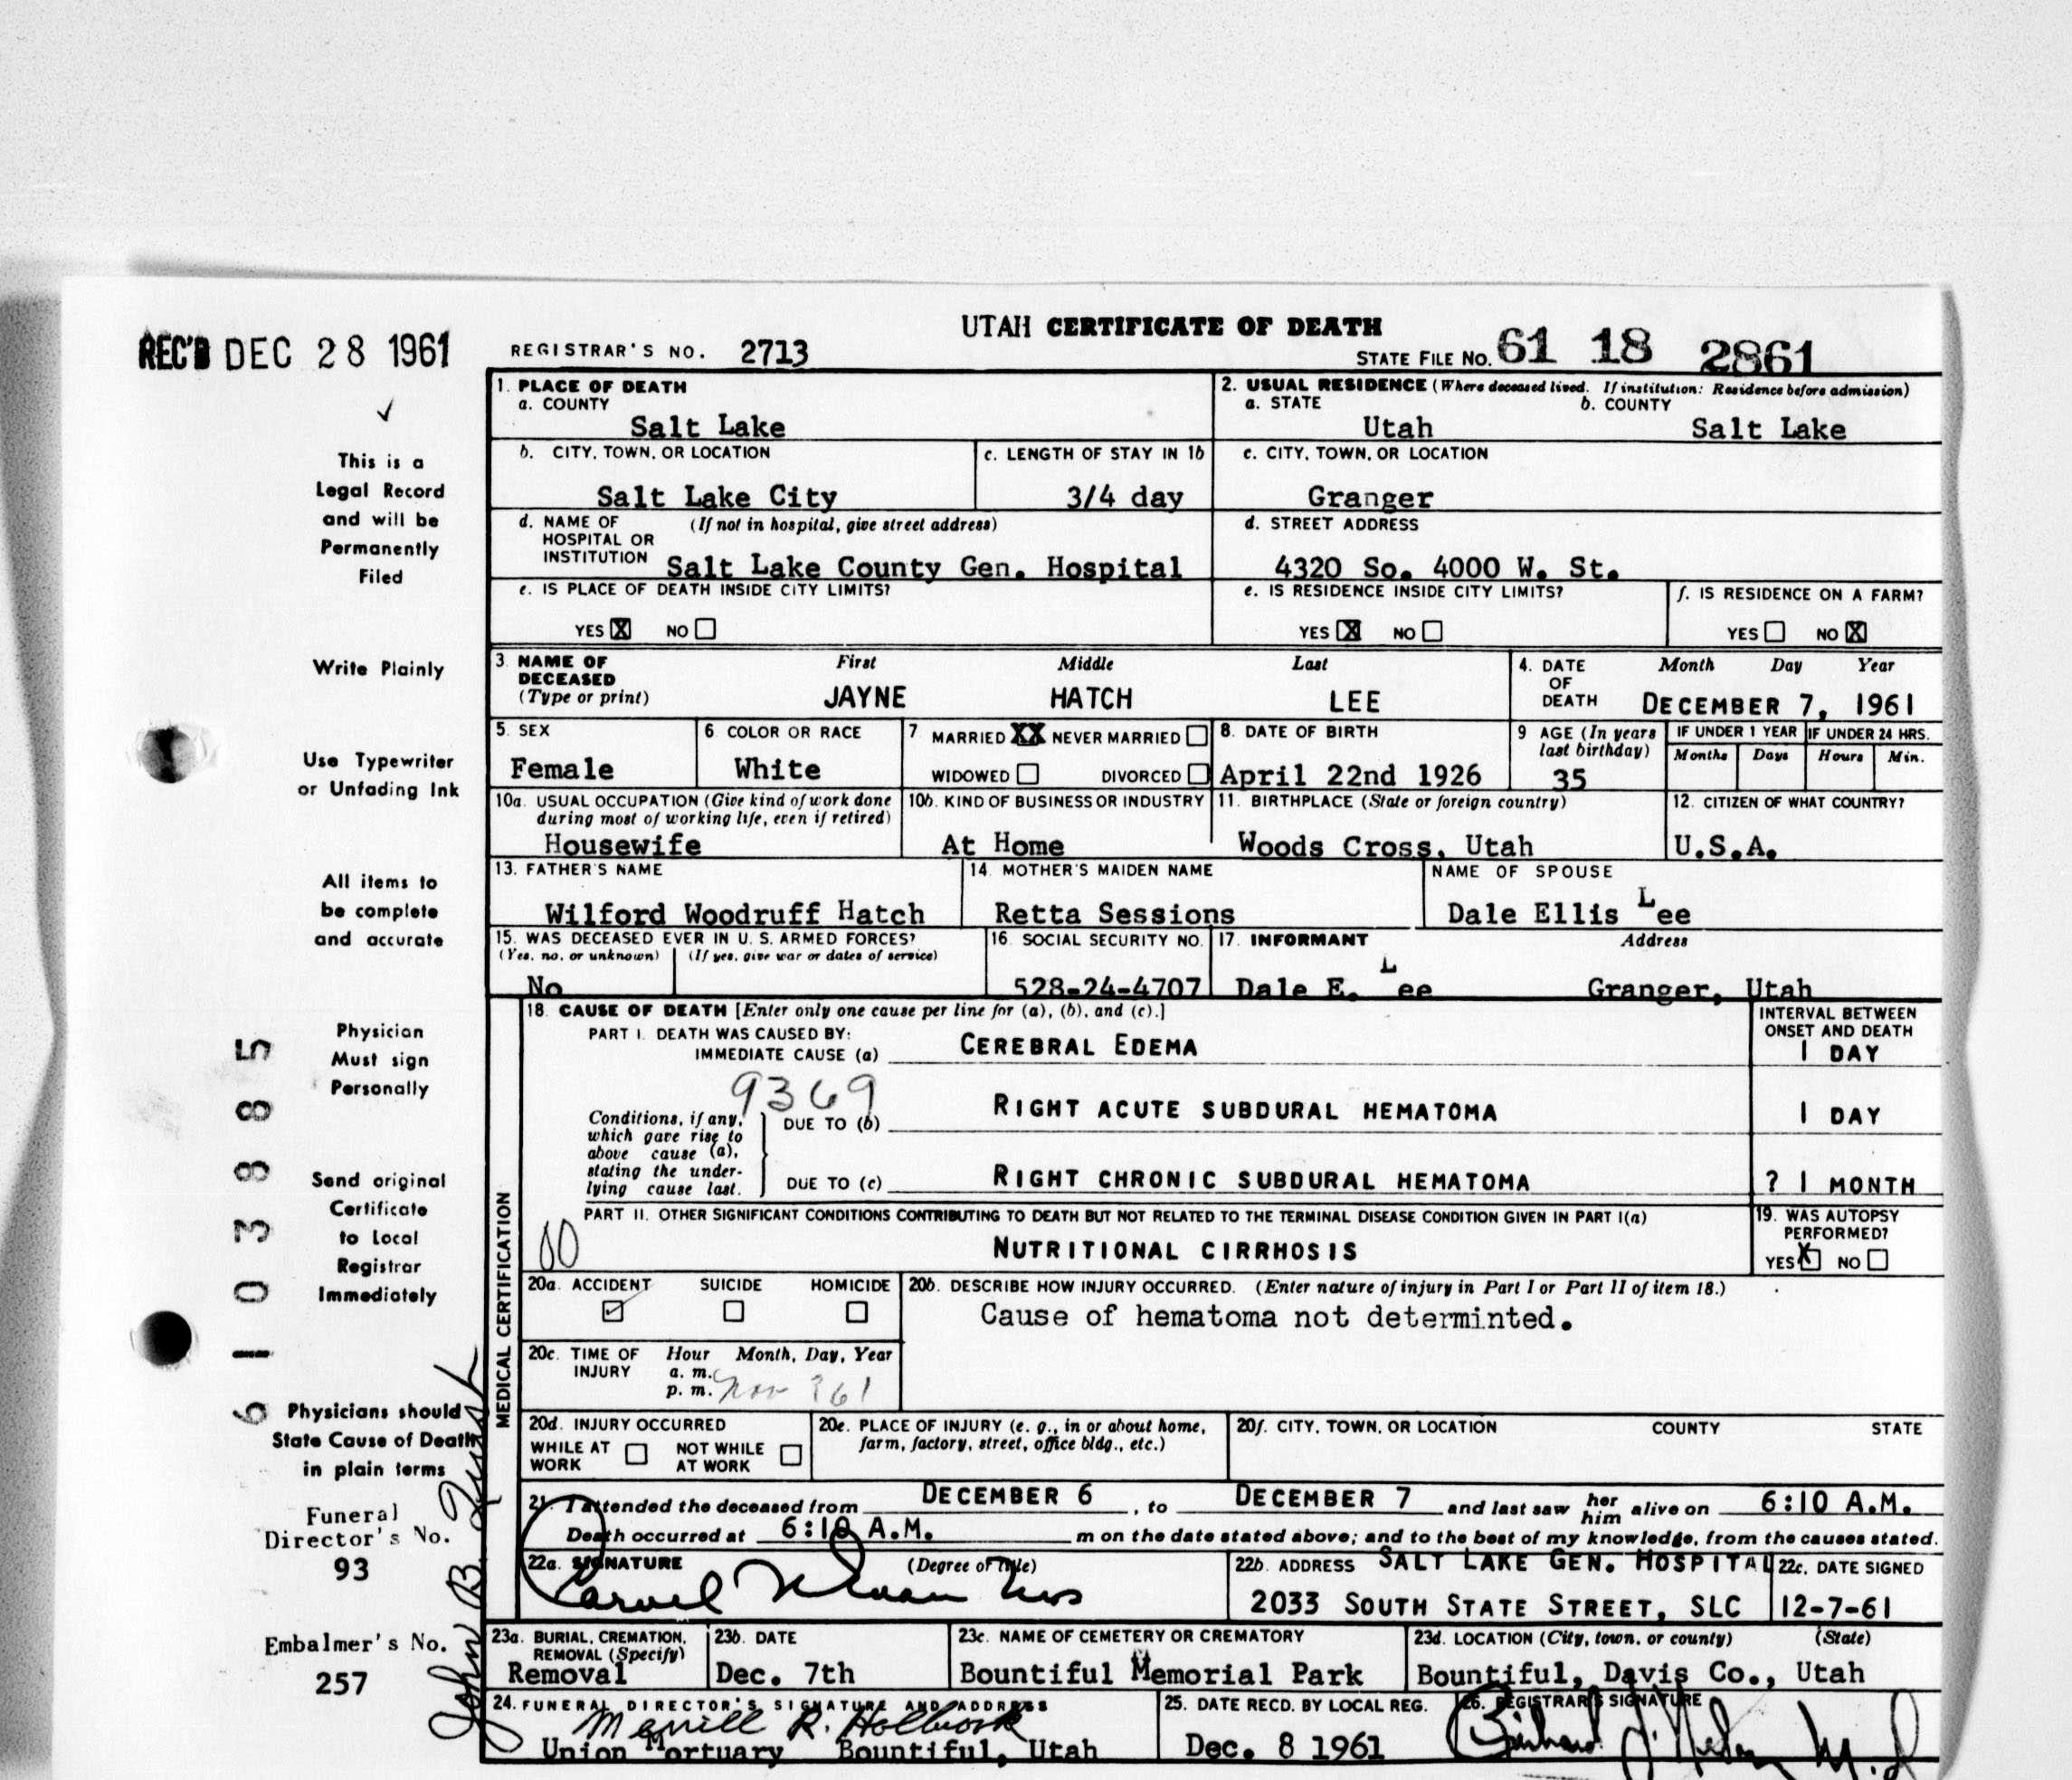 UTAH CERTIFICATE OF DEATH
REC'D DEC 28 1961
REGISTRAR'S NO. 2713
STATE FILE NO. 61 18 2861
1. PLACE OF DEATH
a. COUNTY
Salt Lake
2. USUAL RESIDENCE (Where deceased lived. If institution: Residence before admission)
a. STATE b. COUNTY
Utah Salt Lake
b. CITY, TOWN, OR LOCATION
Salt Lake City
c. LENGTH OF STAY IN 1b
3/4 day
c. CITY, TOWN, OR LOCATION
Granger
d. NAME OF HOSPITAL OR INSTITUTION (If not in hospital, give street address)
Salt Lake County Gen. Hospital
d. STREET ADDRESS
4320 So. 4000 W. St.
e. IS PLACE OF DEATH INSIDE CITY LIMITS?
YES X NO
e. IS RESIDENCE INSIDE CITY LIMITS?
YES X NO
f. IS RESIDENCE ON A FARM?
YES NO X
3. NAME OF DECEASED (Type or print)
First Middle Last
JAYNE HATCH LEE
4. DATE OF DEATH
Month Day Year
DECEMBER 7, 1961
5. SEX
Female
6 COLOR OR RACE
White
7 MARRIED XX NEVER MARRIED
WIDOWED DIVORCED
8. DATE OF BIRTH
April 22nd 1926
9 AGE (In years last birthday)
35
IF UNDER 1 YEAR
Months Days
IF UNDER 24 HRS.
Hours Min.
10a. USUAL OCCUPATION (Give kind of work done during most of working life, even if retired)
Housewife
10b. KIND OF BUSINESS OR INDUSTRY
At Home
11. BIRTHPLACE (State or foreign country)
Woods Cross, Utah
12. CITIZEN OF WHAT COUNTRY?
U.S.A.
13. FATHER'S NAME
Wilford Woodruff Hatch
14. MOTHER'S MAIDEN NAME
Retta Sessions
NAME OF SPOUSE
Dale Ellis Lee
15. WAS DECEASED EVER IN U. S. ARMED FORCES?
(Yes, no, or unknown) (If yes, give war or dates of service)
No
16. SOCIAL SECURITY NO.
528-24-4707
17. INFORMANT Address
Dale E. Lee Granger, Utah
MEDICAL CERTIFICATION
18. CAUSE OF DEATH [Enter only one cause per line for (a), (b), and (c).]
INTERVAL BETWEEN ONSET AND DEATH
PART I. DEATH WAS CAUSED BY:
IMMEDIATE CAUSE (a) CEREBRAL EDEMA 1 DAY
9369
Conditions, if any, which gave rise to above cause (a), stating the underlying cause last.
DUE TO (b) RIGHT ACUTE SUBDURAL HEMATOMA 1 DAY
DUE TO (c) RIGHT CHRONIC SUBDURAL HEMATOMA ? 1 MONTH
PART II. OTHER SIGNIFICANT CONDITIONS CONTRIBUTING TO DEATH BUT NOT RELATED TO THE TERMINAL DISEASE CONDITION GIVEN IN PART I(a)
NUTRITIONAL CIRRHOSIS
19. WAS AUTOPSY PERFORMED?
YES X NO
20a. ACCIDENT SUICIDE HOMICIDE
20b. DESCRIBE HOW INJURY OCCURRED. (Enter nature of injury in Part I or Part II of item 18.)
Cause of hematoma not determinted.
20c. TIME OF INJURY Hour Month, Day, Year
a. m.
p. m. Nov ? 61
20d. INJURY OCCURRED
WHILE AT WORK NOT WHILE AT WORK
20e. PLACE OF INJURY (e. g., in or about home, farm, factory, street, office bldg., etc.)
20f. CITY, TOWN, OR LOCATION COUNTY STATE
21. I attended the deceased from DECEMBER 6, to DECEMBER 7 and last saw her him alive on 6:10 A.M.
Death occurred at 6:10 A.M. m on the date stated above; and to the best of my knowledge, from the causes stated.
22a. SIGNATURE (Degree or title)
22b. ADDRESS SALT LAKE GEN. HOSPITAL
2033 SOUTH STATE STREET, SLC
22c. DATE SIGNED
12-7-61
23a. BURIAL, CREMATION, REMOVAL (Specify)
Removal
23b. DATE
Dec. 7th
23c. NAME OF CEMETERY OR CREMATORY
Bountiful Memorial Park
23d. LOCATION (City, town, or county) (State)
Bountiful, Davis Co., Utah
24. FUNERAL DIRECTOR'S SIGNATURE AND ADDRESS
Merrill R. Holbrook
Union Mortuary Bountiful, Utah
25. DATE RECD. BY LOCAL REG.
Dec. 8 1961
26. REGISTRAR'S SIGNATURE
This is a
Legal Record
and will be
Permanently
Filed
Write Plainly
Use Typewriter
or Unfading Ink
All items to
be complete
and accurate
Physician
Must sign
Personally
Send original
Certificate
to Local
Registrar
Immediately
Physicians should
State Cause of Death
in plain terms
Funeral
Director's No.
93
Embalmer's No.
257
John B.
61 03885